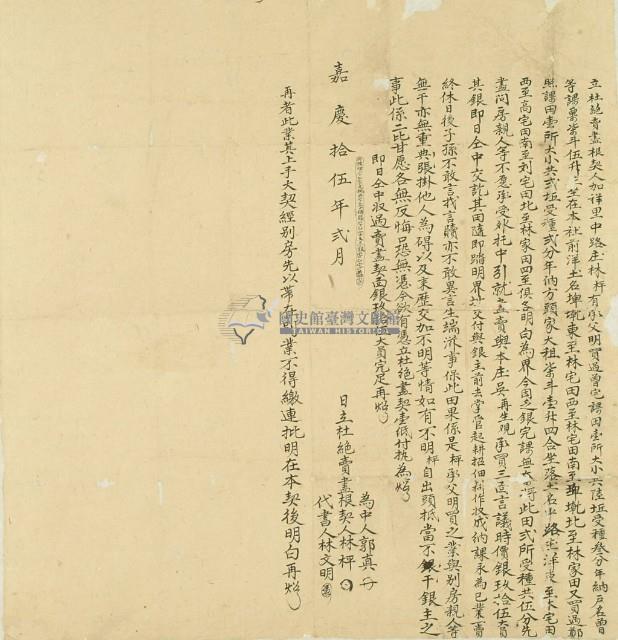 立杜絕賣盡根契人加祥里中路庄林枰有承父明買過曾宅課田壹所大小共陸坵受種叁分年納戶名曾
等課粟柒斗伍升坐在本社前洋土名埤墘東至林宅田西至林宅田南至埤墘北至林家田又買過鄭
課田壹所大小共弍坵受種弍分年納方頭家大租柒斗壹升四合坐落土名中路宅洋東至本宅田
西至高宅田南至利宅田北至林家田四至俱各明白為界今因乏銀完課無奈將此田弍所受種共伍分先
盡問房親人等不愿承受外托中引就盡賣與本庄吳再生觀承買三面言議時價銀玖拾伍大員
其銀即日仝中交訖其田隨即踏明界址交付與銀主前去掌管起耕招佃耕作收成納課永為己業一賣
終休日後子孫不敢言找言贖亦不敢異言生端滋事保此田果係是枰承父明買之業與別房親人等
無干亦無重典張掛他人為碍以及來歷交加不明等情如有不明枰自出頭抵當不干銀主之
事此係二比甘愿各無反悔口恐無憑今欲有憑立杜絕盡契壹紙付执為炤
即日仝中收過賣盡契面銀玖拾伍大員完足再炤
嘉慶拾伍年弍月 日立杜絕賣盡根契人林枰
為中人郭真
代書人林文明
再者此業其上手大契經別房先以帶在別業不得繳連批明在本契後明白再炤
國史館臺灣文獻館
TAIWAN HISTORICA